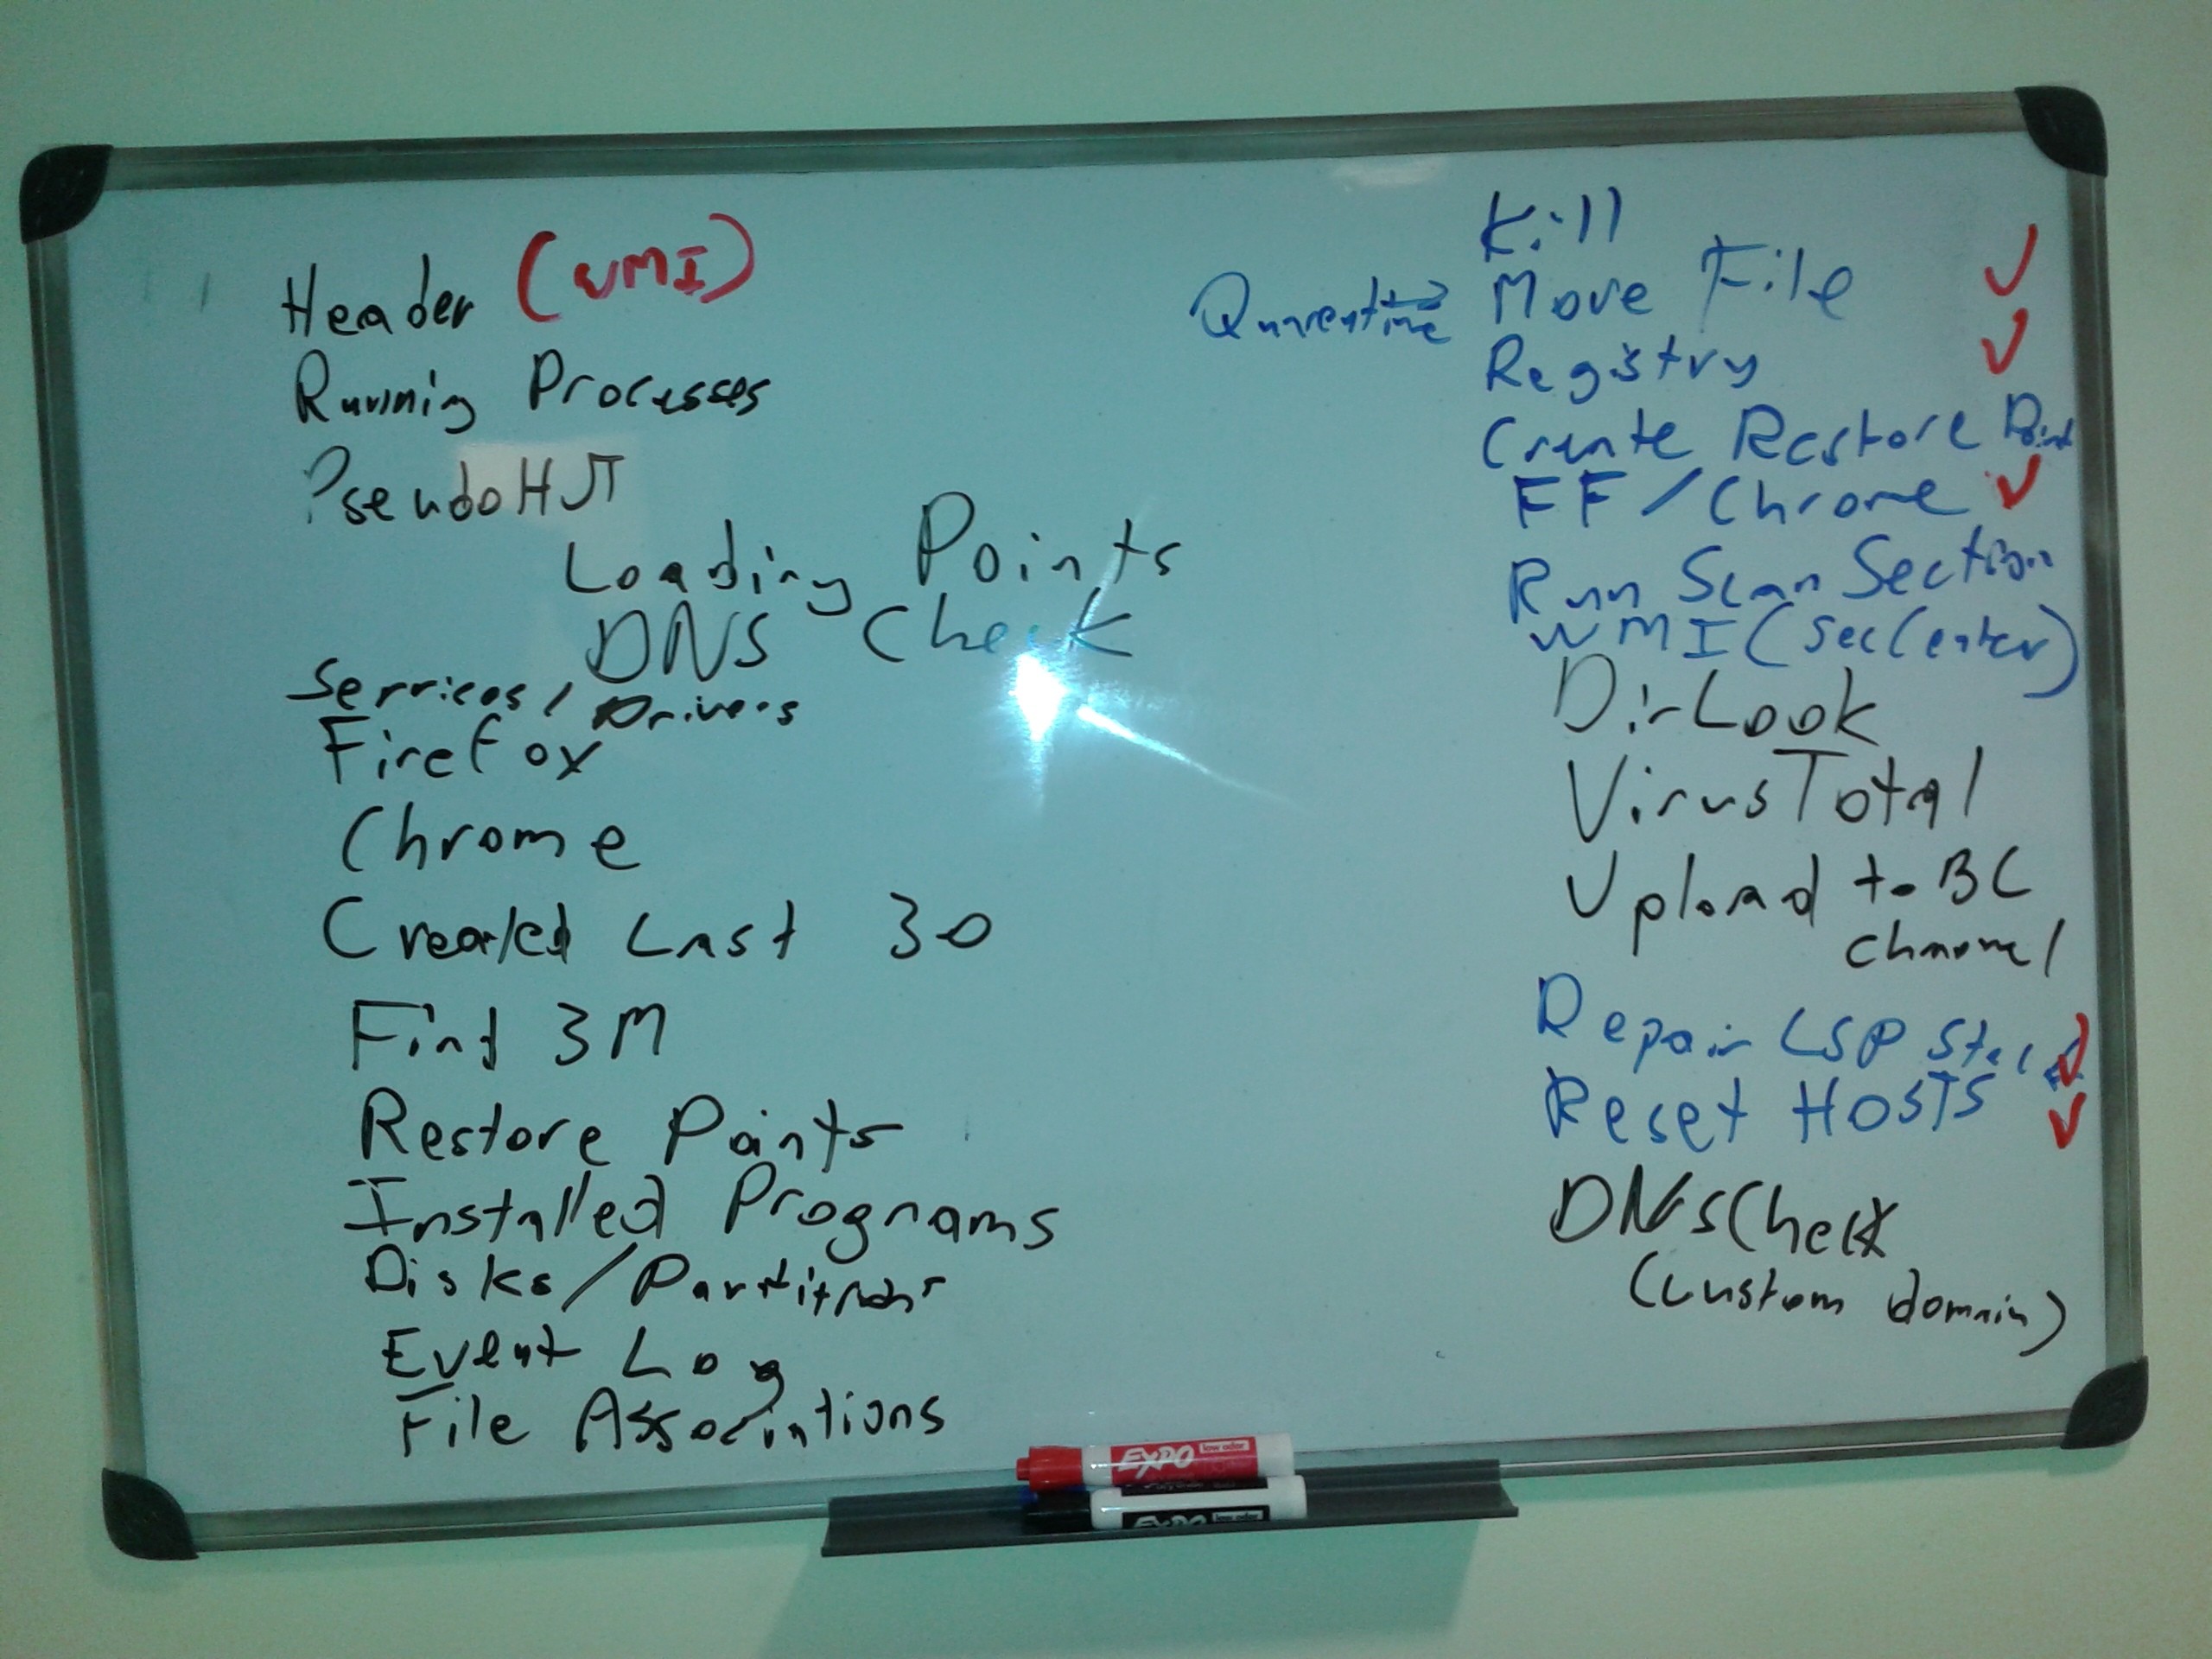 Header (WMI)
Running Processes
Pseudo HJT
Loading Points
DNS Check
Services / Drivers
Firefox
Chrome
Created Last 30
Find 3M
Restore Points
Installed Programs
Disks/Partitions
Event Log
File Associations
Kill
Quarentine Move File ✓
Registry ✓
Create Restore Point
FF/Chrome ✓
Run Scan Section
WMI (SecCenter)
DirLook
VirusTotal
Upload to BC
channel
Repair LSP Stack ✓
Reset HOSTS ✓
DNSCheck
(custom domain)
EXPO low odor
EXPO low odor